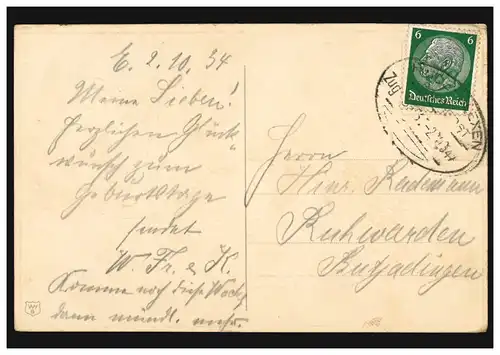 E. 2. 10. 34
Meine Lieben!
Herzlichen Glück
wunsch zum
Geburtstage
sendet
W. Fr. & K.
Komme noch diese Woche
dann mündl. mehr.
6 6
Deutsches Reich
Zug
EXEN
Herrn
Hinr. Rademann
Ruhwarden
Butjadingen